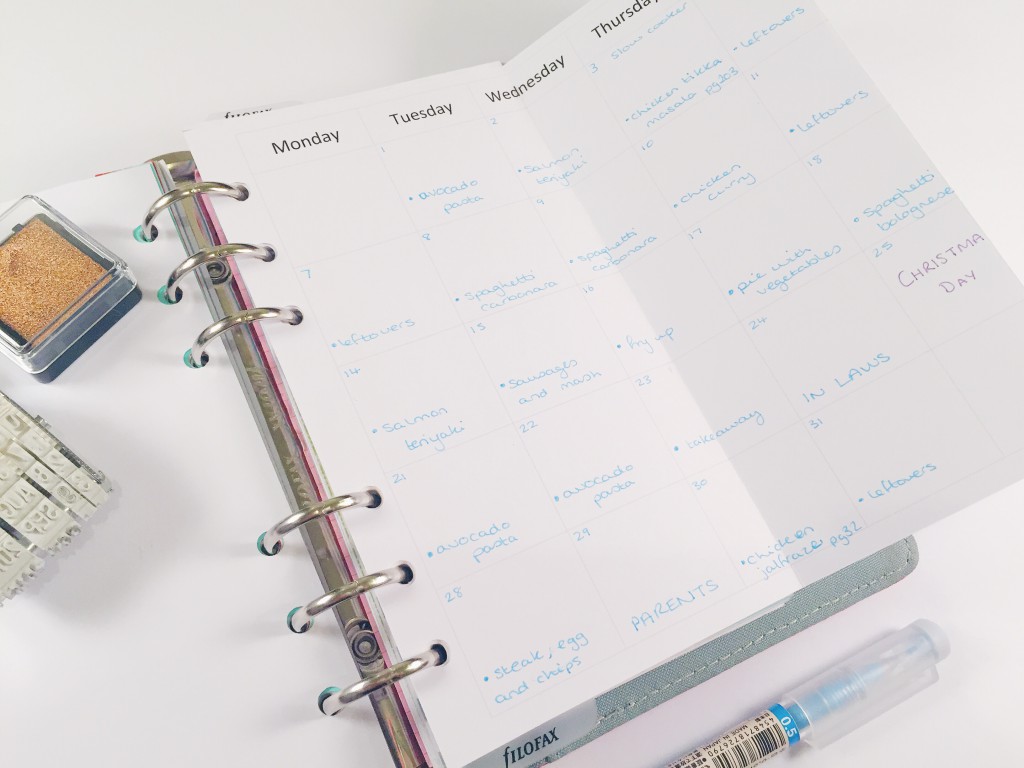 FILOFAX
Monday
Tuesday
Wednesday
Thursday
1
• avocado
pasta
2
• Salmon
teriyaki
3 slow cooker
• chicken tikka
masala pg303
• leftovers
7
• leftovers
8
• spaghetti
carbonara
9
• spaghetti
carbonara
10
• chicken
curry
11
• leftovers
14
• Salmon
teriyaki
15
• sausages
and mash
16
• fry up
17
• pie with
vegetables
18
• spaghetti
bolognese
21
• avocado
pasta
22
• avocado
pasta
23
• takeaway
24
IN LAWS
25
CHRISTMA
DAY
28
• steak, egg
and chips
29
PARENTS
30
• chicken
jalfraze pg32
31
• leftovers
FILOFAX
0.5
MADE IN JAPAN